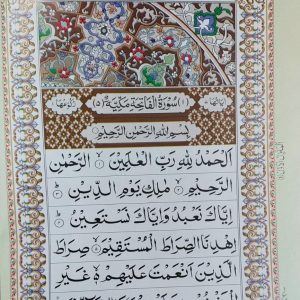 (۱) سُوْرَةُ الْفَاتِحَةِ مَكِّيَّةٌ (۵)
بِسْمِ اللّٰهِ الرَّحْمٰنِ الرَّحِيْمِ
اَلْحَمْدُ لِلّٰهِ رَبِّ الْعٰلَمِيْنَ ۙ الرَّحْمٰنِ
الرَّحِيْمِ ۙ مٰلِكِ يَوْمِ الدِّيْنِ
اِيَّاكَ نَعْبُدُ وَاِيَّاكَ نَسْتَعِيْنُ
اِهْدِنَا الصِّرَاطَ الْمُسْتَقِيْمَ ۙ صِرَاطَ
الَّذِيْنَ اَنْعَمْتَ عَلَيْهِمْ ۙ غَيْرِ